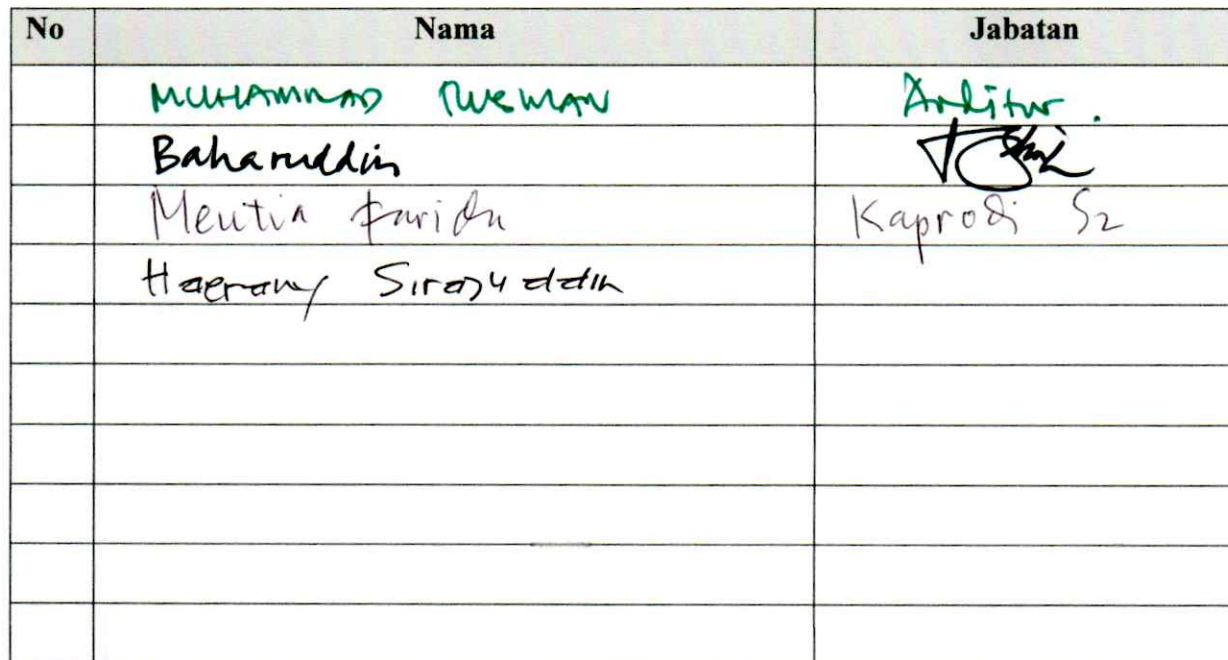 No Nama Jabatan
MUHAMMAD RUSMAN Auditur.
Baharuddin
Meutia Farida Kaprodi S2
Haerany Sirajuddin